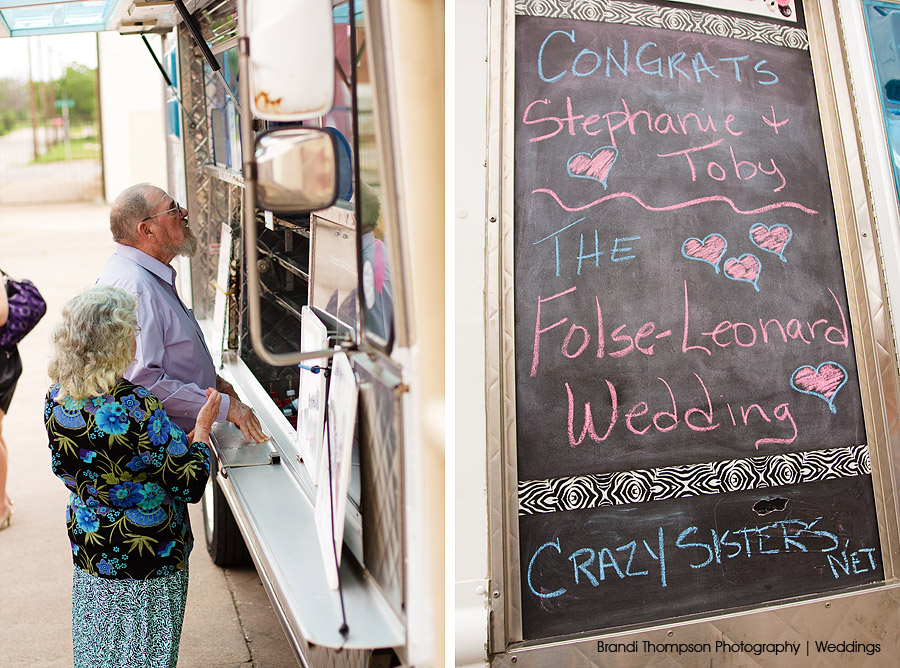 Congrats
Stephanie +
Toby
The
Folse-Leonard
Wedding
CrazySisters.Net
Brandi Thompson Photography | Weddings